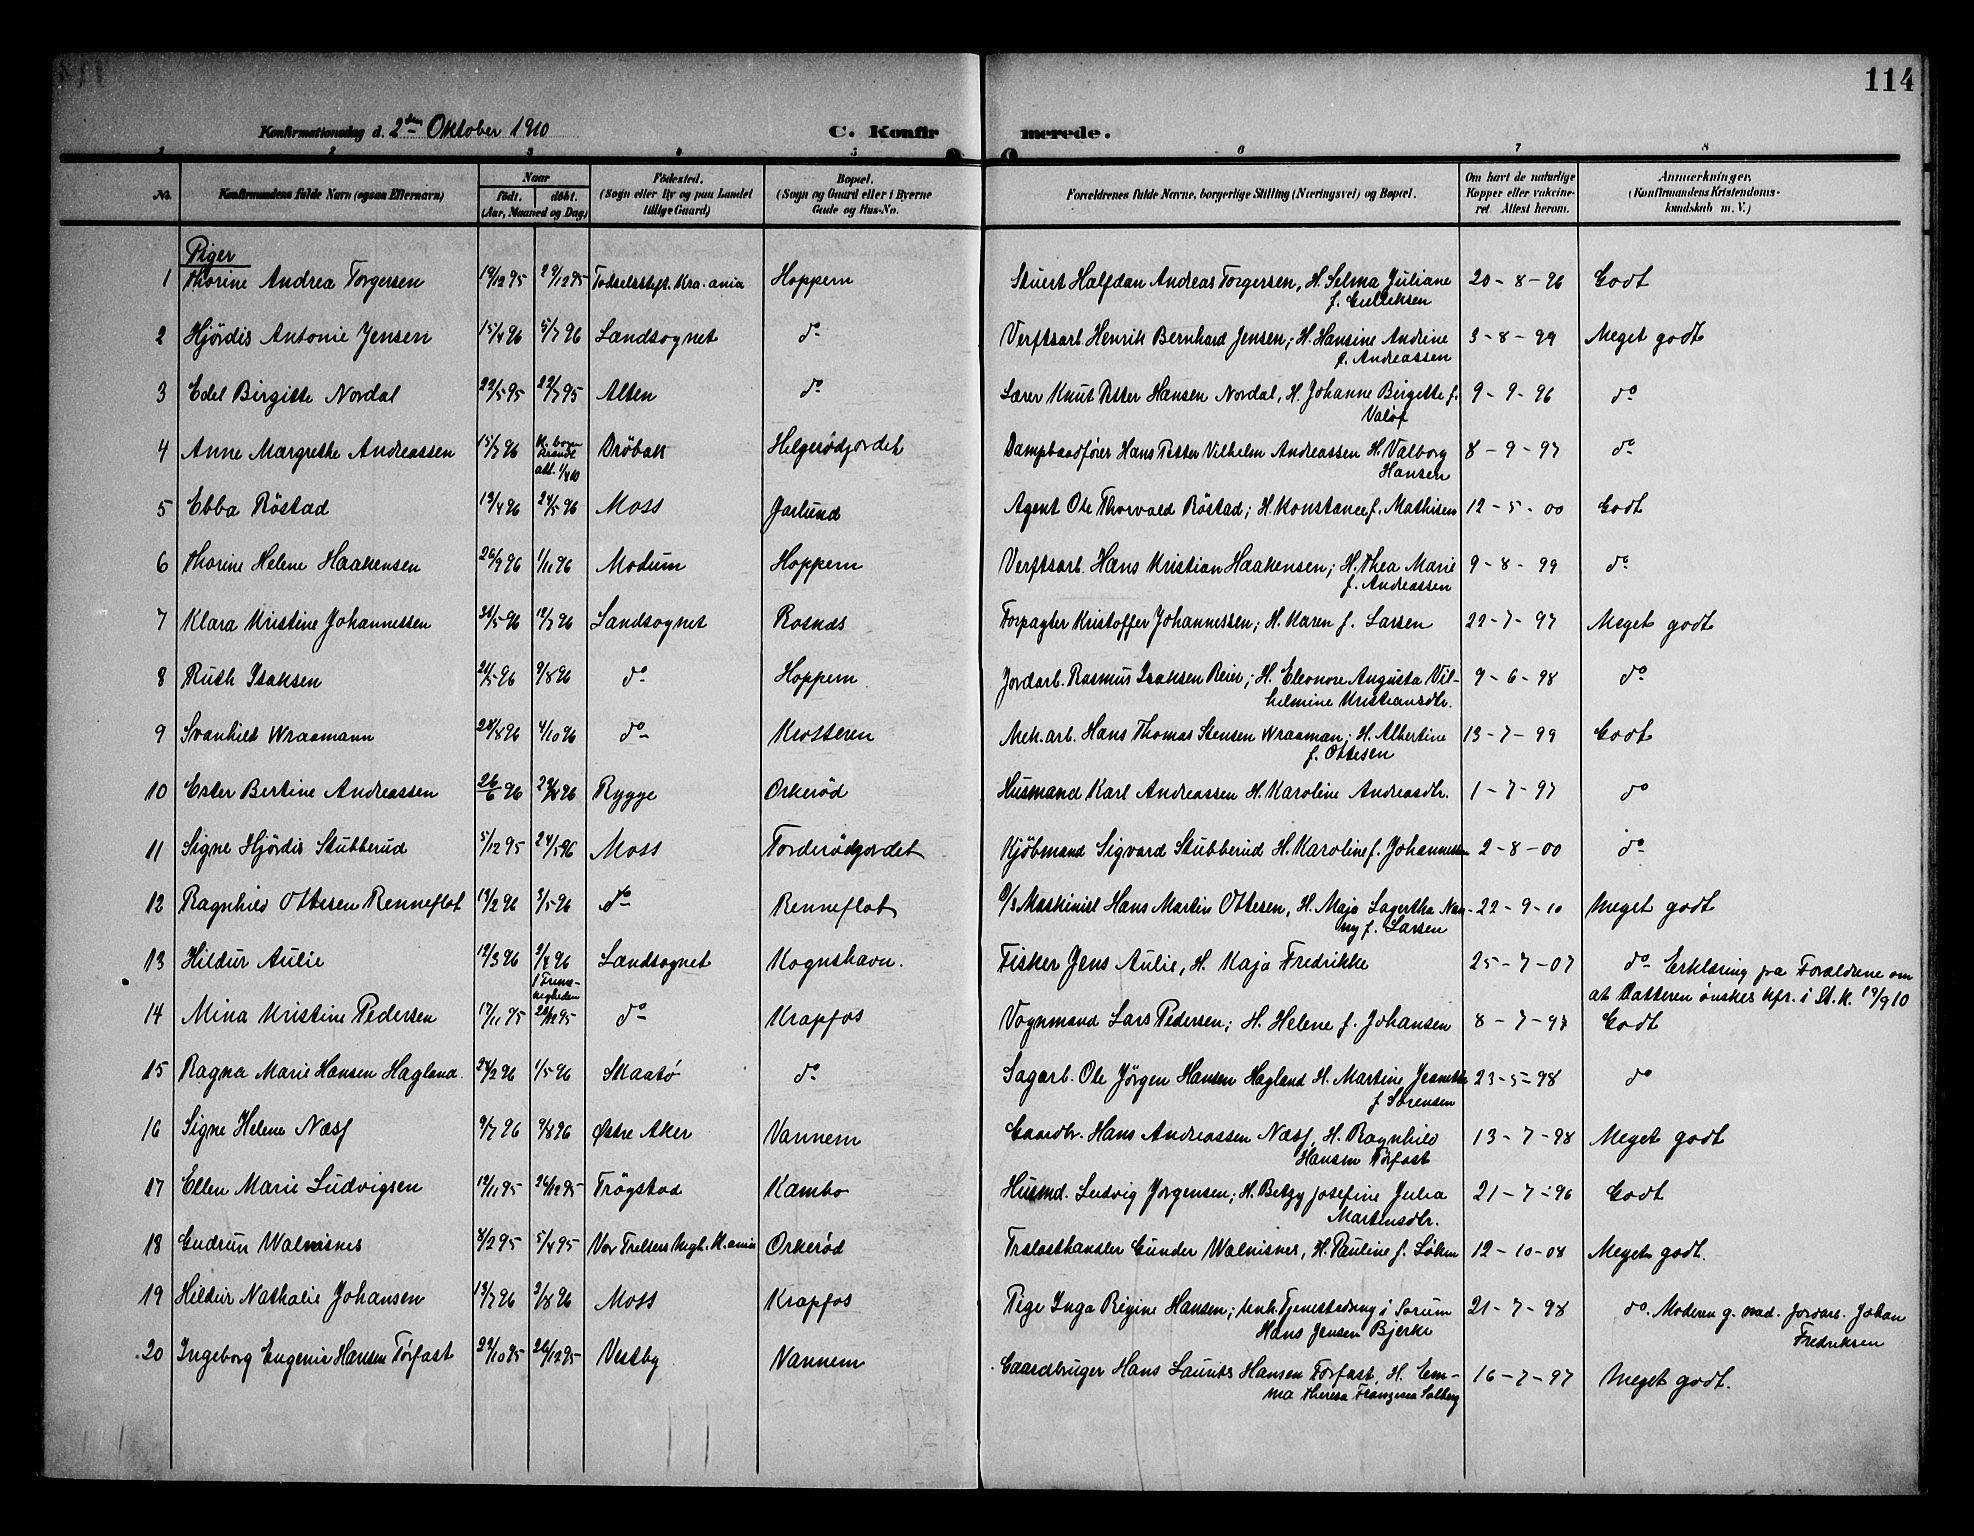 114
Konfirmationsdag d. 2den Oktober 1910 C. Konfirmerede.
1 2 3 4 5 6 7 8
No. Konfirmandens fulde Navn (ogsaa Efternavn) Naar født. døbt. (Aar, Maaned og Dag) Fødested. (Sogn eller By og paa Landet tillige Gaard) Bopæl. (Sogn og Gaard eller i Byerne Gade og Hus-No. Forældrenes fulde Navne, borgerlige Stilling (Næringsvei) og Bopæl. Om havt de naturlige Kopper eller vakcineret. Attest herom. Anmærkninger. (Konfirmandens Kristendomskundskab m. V.)
Piger
1 Thorine Andrea Torgersen 19/12 95 29/12 95 Fødselsstift. Kra.ania Hoppern Stuert Halfdan Andreas Torgersen, H. Selma Juliane 20-8-96 Godt
f. Gulliksen
2 Hjördis Antonie Jensen 15/4 96 5/7 96 Landsognet do Verftsarb. Henrik Bernhard Jensen; H. Hansine Andrine 3-8-99 Meget godt
f. Andreassen
3 Edel Birgitte Nordal 22/5 95 22/7 95 Alten do Lærer Knut Petter Hansen Nordal, H. Johanne Birgitte f. 9-9-96 do
4 Anne Margrethe Andreassen 15/7 96 Dröbak Helgerödjordet Dampbaadfører Hans Petter Vilhelm Andreassen H. Valborg 8-9-97 do
Hansen
5 Ebba Röstad 13/4 96 24/5 96 Moss Jarlund Agent Ole Thorvald Röstad; H. Konstance f. Mathisen 12-5-00 Godt
6 Thorine Helene Haakensen 26/9 96 1/11 96 Modum Hoppern Verftsarb. Hans Kristian Haakensen; H. Thea Marie 9-8-99 do
f. Andreassen
7 Klara Kristine Johannessen 21/5 96 19/7 96 Landsognet Rosnæs Forpagter Kristoffer Johannessen; H. Karen f. Larsen 22-7-97 Meget godt
8 Ruth Isaksen 21/5 96 9/8 96 do Hoppern Jordarb. Rasmus Isaksen Reier; H. Eleonore Augusta Vil- 9-6-98 do
helmine Kristiansdtr.
9 Svanhild Wraamann 28/8 96 4/10 96 do Krosseren Mek.arb. Hans Thomas Stensen Wraaman; H. Albertine 13-7-99 Godt
f. Ottesen
10 Ester Bertine Andreassen 26/6 96 Rygge Orkerød Husmand Karl Andreassen H. Karoline Andreasdtr. 1-7-97 do
11 Signe Hjördis Stubberud 5/12 95 24/5 96 Moss Torderødjordet Kjöbmand Sigvard Stubberud H. Karoline f. Johannessen 2-8-00 do
12 Ragnhild Ottesen Renneflot 19/2 96 3/5 96 do Renneflot Maskinist Hans Martin Ottesen, H. Maja Lagertha Nan- 22-9-10 Meget godt
ny f. Larsen
13 Hildur Aulie 19/3 96 2/4 96 Landsognet Kognshavn. Fisker Jens Aulie, H. Kaja Fredrikke 25-7-07 do Erklæring fra Forældrene om
at Datteren ønskes kfr. i St.K. 19/9 10
14 Mina Kristine Pedersen 17/11 95 26/12 95 do Krapfos Vognmand Lars Pedersen; H. Helene f. Johansen 8-7-97 Godt
15 Ragna Marie Hansen Hagland 24/2 96 1/5 96 Skaatö do Sagarb. Ole Jörgen Hansen Hagland H. Martine Jeanette 23-5-98 do
f Sörensen
16 Signe Helene Næss 9/7 96 9/8 96 Østre Aker Vannem Gaardbr. Hans Andreassen Næss, H. Ragnhild 13-7-98 Meget godt
Hansen Torfast
17 Ellen Marie Ludvigsen 19/11 95 26/12 95 Trögstad Kambo Husmd. Ludvig Jorgensen; H. Betzy Josefine Julia 21-7-96 Godt
Martinsdtr.
18 Gudrun Walnisnes 8/2 95 5/4 95 Vor Frelsers Megh. K.ania Orkerød Trælasthandler Gunder Walnisnes, H. Pauline f. Løken 12-10-08 Meget godt.
19 Hildur Nathalie Johansen 13/7 96 2/8 96 Moss Krapfos Pige Inga Regine Hansen; Tjenestedreng i Sorum 21-7-98 do. Moderen g. med. Jordarb. Johan
Hans Jensen Bjerke Fredriksen
20 Ingeborg Eugenie Hansen Tørfast 22/10 95 26/12 95 Vestby Vannem Gaardbruger Hans Laurits Hansen Torfast, H. Em- 16-7-97 Meget godt.
ma Theresa Franzena Solberg